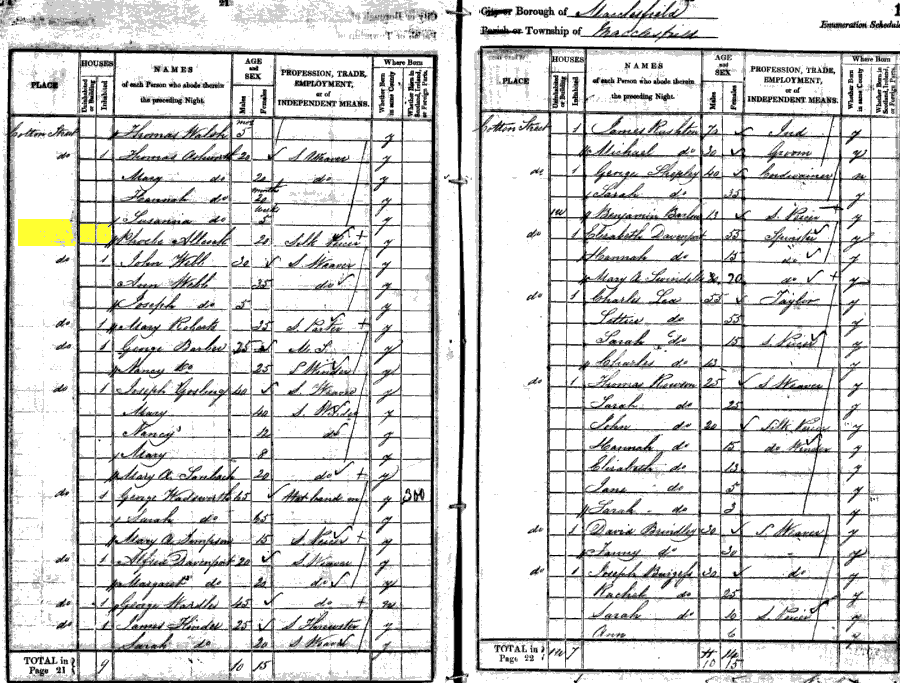 21
PLACE
HOUSES
Uninhabited or Building
Inhabited
NAMES
of each Person who abode therein
the preceding Night.
AGE
and
SEX
Males
Females
PROFESSION, TRADE,
EMPLOYMENT,
or of
INDEPENDENT MEANS.
Where Born
Whether Born in same County
Whether Born in Scotland, Ireland, or Foreign Parts.
Cotton Street Thomas Walsh 5 y
do 1 Thomas Ashworth 20 S. Weaver y
Mary do 20 do y
Hannah do months 20 y
Susanna do weeks 5 y
Phoebe 20 Silk Piecer y
do 1 John Webb 30 S. Weaver y
Ann Webb 35 do y
Joseph do 5 y
do 1 Mary Roberts 35 y
do 1 George Barber 35 M. S. y
Nancy do 25 S Winder y
do 1 Joseph Gosling 40 S. Weaver y
Mary 40 y
Nancy 12 do y
Mary 8 y
Mary A. 20 do y
do 1 George Wadsworth 65 y 300
Sarah do 65 y
Mary A. Simpson 15 S. Piecer y
do 1 Alfred Davenport 20 S. Weaver y
Margaret do 20 do y
do 1 George Wardle 45 do n
do 1 James Hinder 25 S. Throwster y
Sarah do 20 S Weaver y
TOTAL in
Page 21 9 10 15
City or Borough of Macclesfield
Parish or Township of Macclesfield
Enumeration Schedule
PLACE
HOUSES
Uninhabited or Building
Inhabited
NAMES
of each Person who abode therein
the preceding Night.
AGE
and
SEX
Males
Females
PROFESSION, TRADE,
EMPLOYMENT,
or of
INDEPENDENT MEANS.
Where Born
Whether Born in same County
Whether Born in Scotland, Ireland, or Foreign Parts.
Cotton Street 1 James Rushton 70 Ind y
Michael do 30 Groom y
do 1 George Shipley 40 Cordwainer n
Sarah do 35 y
1U Benjamin Barlow 13 S. Piecer y
do 1 Elizabeth Davenport 55 Spinster y
Hannah do 15 do y
Mary A. 20 do y
do 1 Charles Lea 55 Taylor y
Lettice do 55 y
Sarah do 15 S. Piecer y
Charles do 13 y
do 1 Thomas Rowson 25 S. Weaver y
Sarah do 25 y
John do 20 Silk Piecer y
Hannah do 15 do Winder y
Elizabeth do 13 y
Jane do 5 y
Sarah do 3 y
do 1 David Brindley 30 S. Weaver y
Fanny do 30 y
do 1 Joseph Burgess 30 do y
Rachel do 25 y
Sarah do 10 S. Piecer y
Ann 6 y
TOTAL in
Page 22 1U 7 10 15